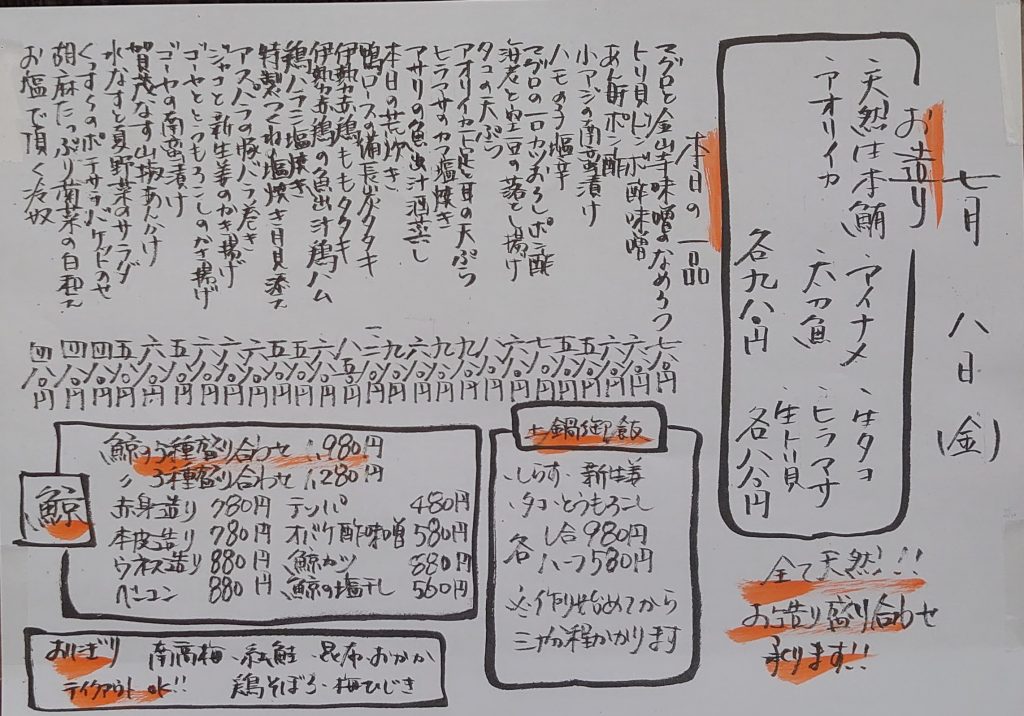 七月 八日 (金)
お造り
、天然生本鮪 、アイナメ 、生タコ
、アオリイカ 太刀魚 、ヒラマサ
生トリ貝
各九八〇円 各八八〇円
全て天然!!
お造り盛り合わせ
承ります!!
本日の一品
マグロと金山寺味噌のなめろう 七八〇円
トリ貝とレンボ酢味噌 六八〇円
あん肝ポン酢
小アジの南蛮漬け
ハモのう塩辛
マグロの一口カツおろしポン酢
海老と空豆の落とし揚げ
タコの天ぷら
アオリイカと茗荷の天ぷら
ヒラマサのカマ塩焼き
アサリの魚出汁酒蒸し
本日の荒炊き
鴨ロースの備長炭タタキ
伊勢赤鶏ももタタキ
伊勢赤鶏の魚出汁鶏ハム
鶏ハラミ塩焼き
特製つくね塩焼き月見添え
アスパラの豚バラ巻き
ジャコと新生姜のかき揚げ
ゴーヤととうもろこしのかき揚げ
ゴーヤの南蛮漬け
賀茂なす山椒あんかけ
水なすと夏野菜のサラダ
くんすぃのポテサラバゲットのせ
胡麻たっぷり菊菜の白和え 四八〇円
お塩で頂く冷奴 四八〇円
鯨
鯨の5種盛り合わせ 1,980円
〃 3種盛り合わせ 1,280円
赤身造り 780円 テッパ 480円
本皮造り 780円 オバケ酢味噌 580円
ウネス造り 880円 鯨カツ 880円
ベーコン 880円 鯨の塩干し 560円
土鍋御飯
・しらす・新生姜
・タコ・とうもろこし
各 1合980円
ハーフ580円
※作り始めてから
三十分程かかります
おにぎり 南高梅・紅鮭・昆布・おかか
テイクアウトok!! 鶏そぼろ・梅ひじき